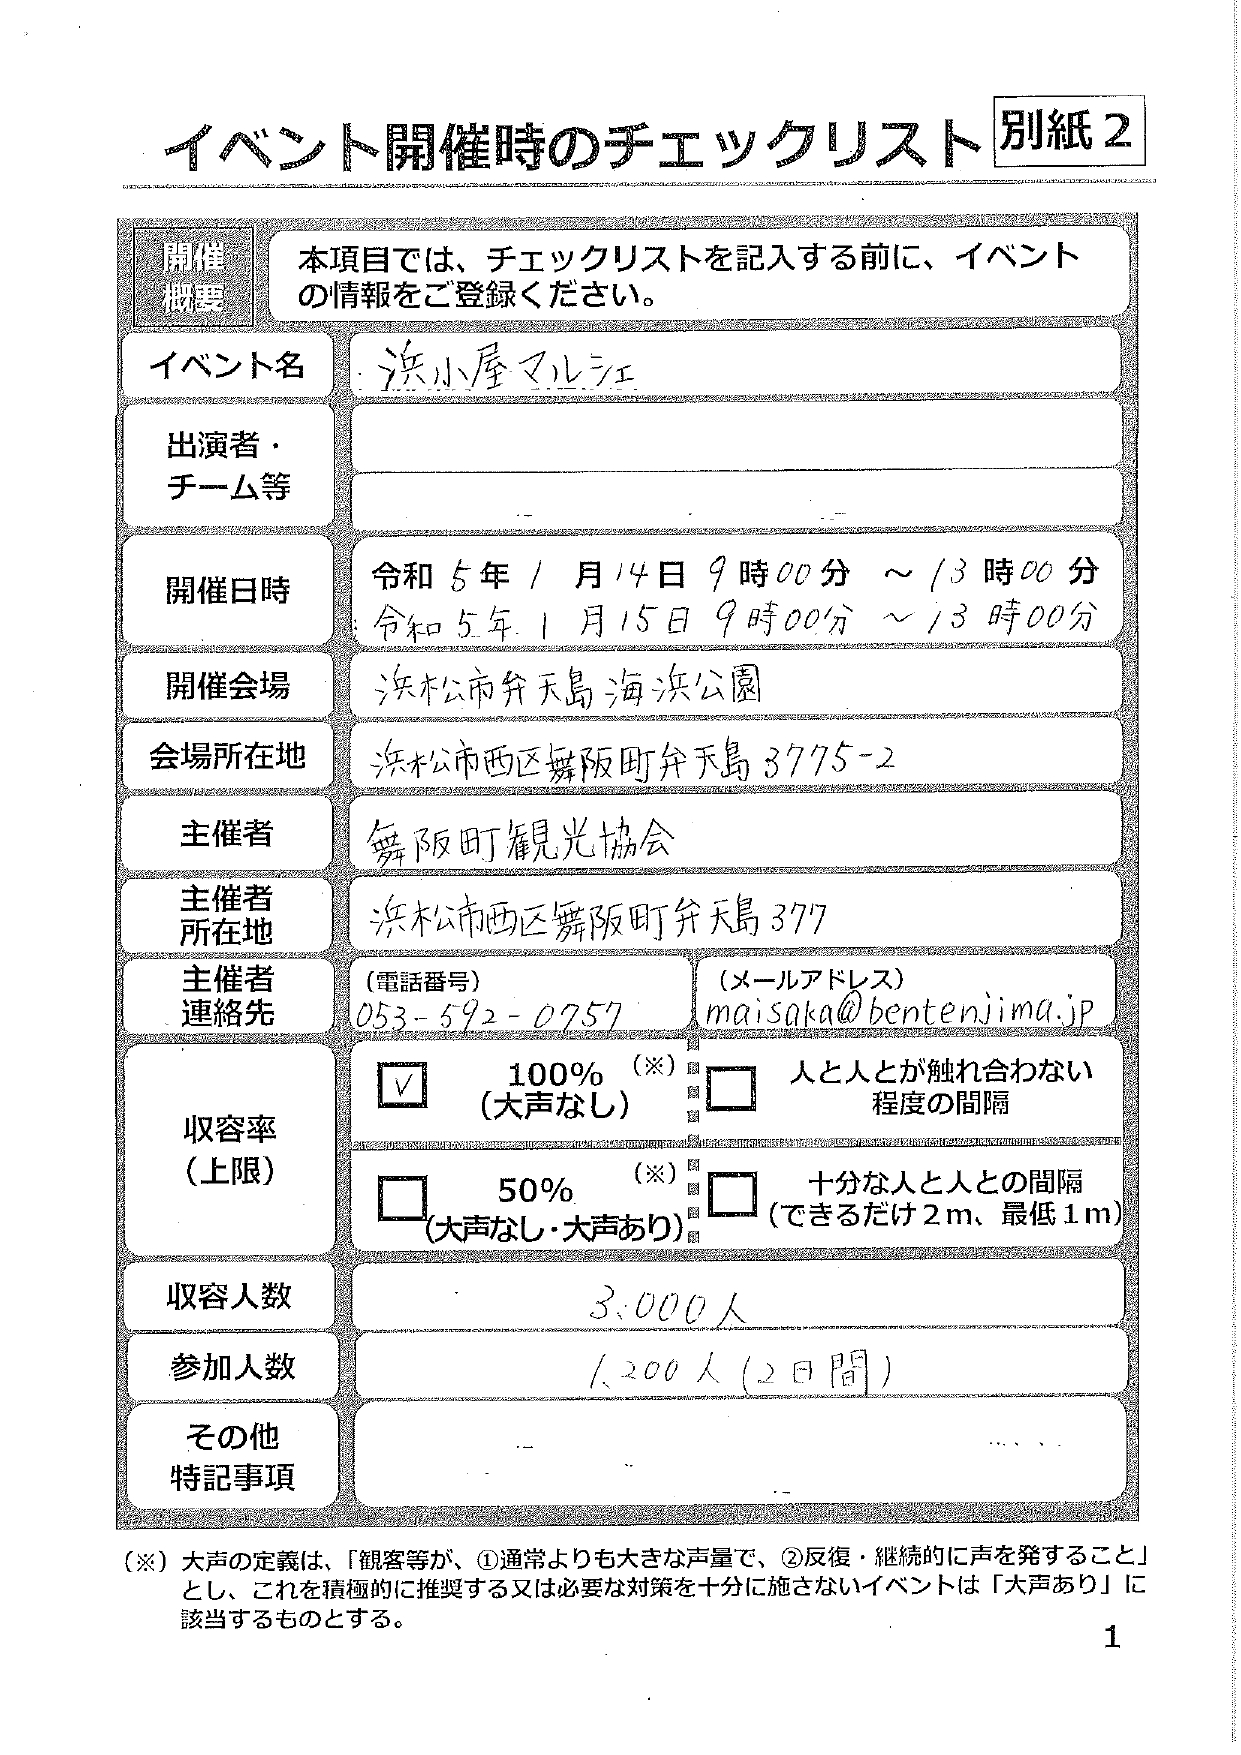 イベント開催時のチェックリスト
別紙2
開催
概要
本項目では、チェックリストを記入する前に、イベント
の情報をご登録ください。
イベント名
浜小屋マルシェ
出演者・
チーム等
開催日時
令和5年1月14日9時00分 ～13時00分
令和5年1月15日9時00分 ～13時00分
開催会場
浜松市弁天島海浜公園
会場所在地
浜松市西区舞阪町弁天島3775-2
主催者
舞阪町観光協会
主催者
所在地
浜松市西区舞阪町弁天島377
主催者
連絡先
（電話番号）
053-592-0757
（メールアドレス）
maisaka@bentenjima.jp
収容率
（上限）
✓
100% （※）
（大声なし）
人と人とが触れ合わない
程度の間隔
50% （※）
（大声なし・大声あり）
十分な人と人との間隔
（できるだけ２ｍ、最低１ｍ）
収容人数
3,000人
参加人数
1,200人(2日間)
その他
特記事項
（※）大声の定義は、「観客等が、①通常よりも大きな声量で、②反復・継続的に声を発すること」
とし、これを積極的に推奨する又は必要な対策を十分に施さないイベントは「大声あり」に
該当するものとする。
1